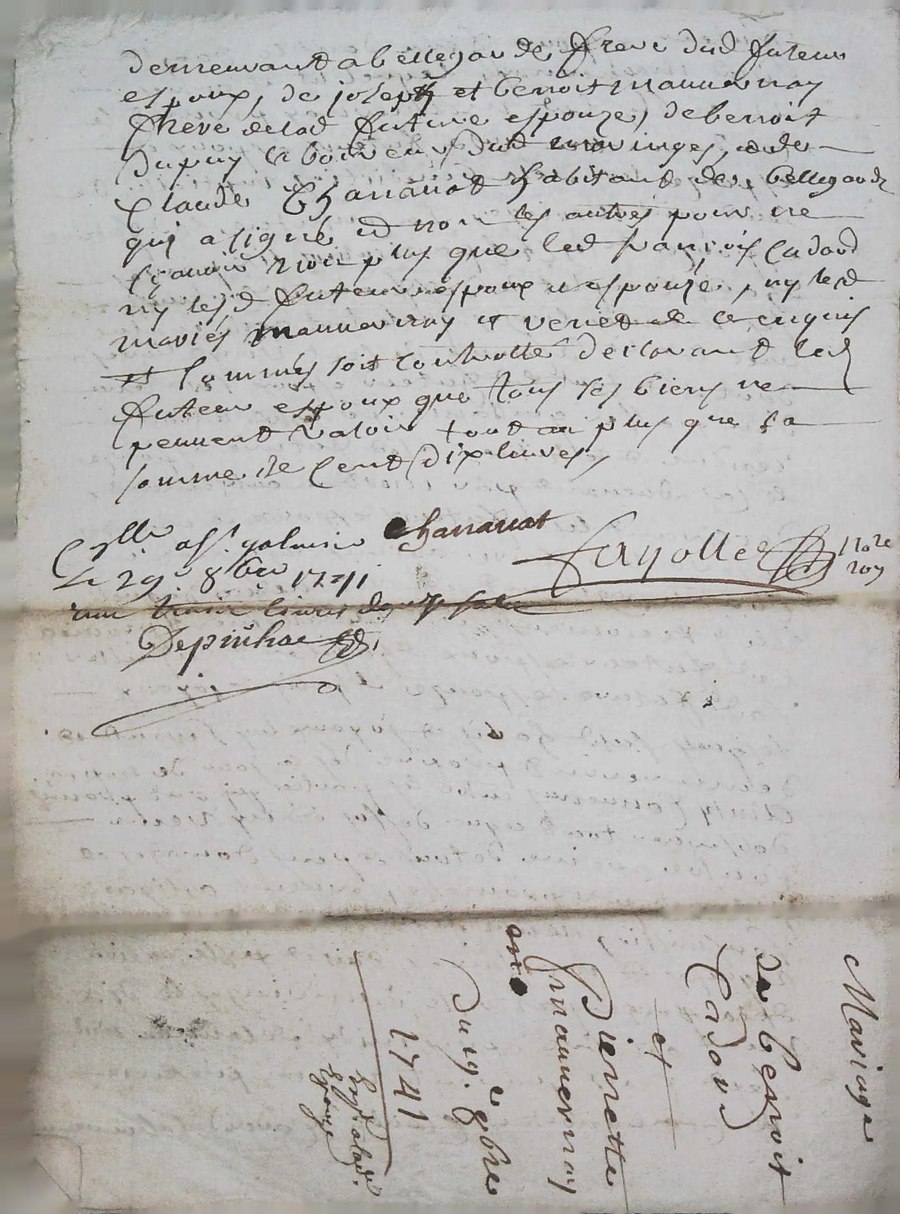 demeurant a bellegarde frere dud futeur
espoux, de joseph et benoit mauvernay
frere de lad future espouze, de benoit
dupuy laboureur dud maringes, et de
Claude Chanavat habitant de bellegarde
qui a signé et non les autres pour ne
sçavoir non plus que led françois Cadord
ny lesd futeur espoux et espouze, ny lesd
mariés mauvernay et veuve de ce enquis
et sommés soit controllé declarant led
futeur espoux que tous ses biens ne
peuvent valoir tout au plus que la
somme de Cent dix livres,
Chanavat
Fayolle No.re roy
Cyllé a st. galmier
le 29e 8bre 1741
Depinhac
Mariage
de benoit
Cadord
et
Pierrette
mauvernay
Du 19e 8bre
1741